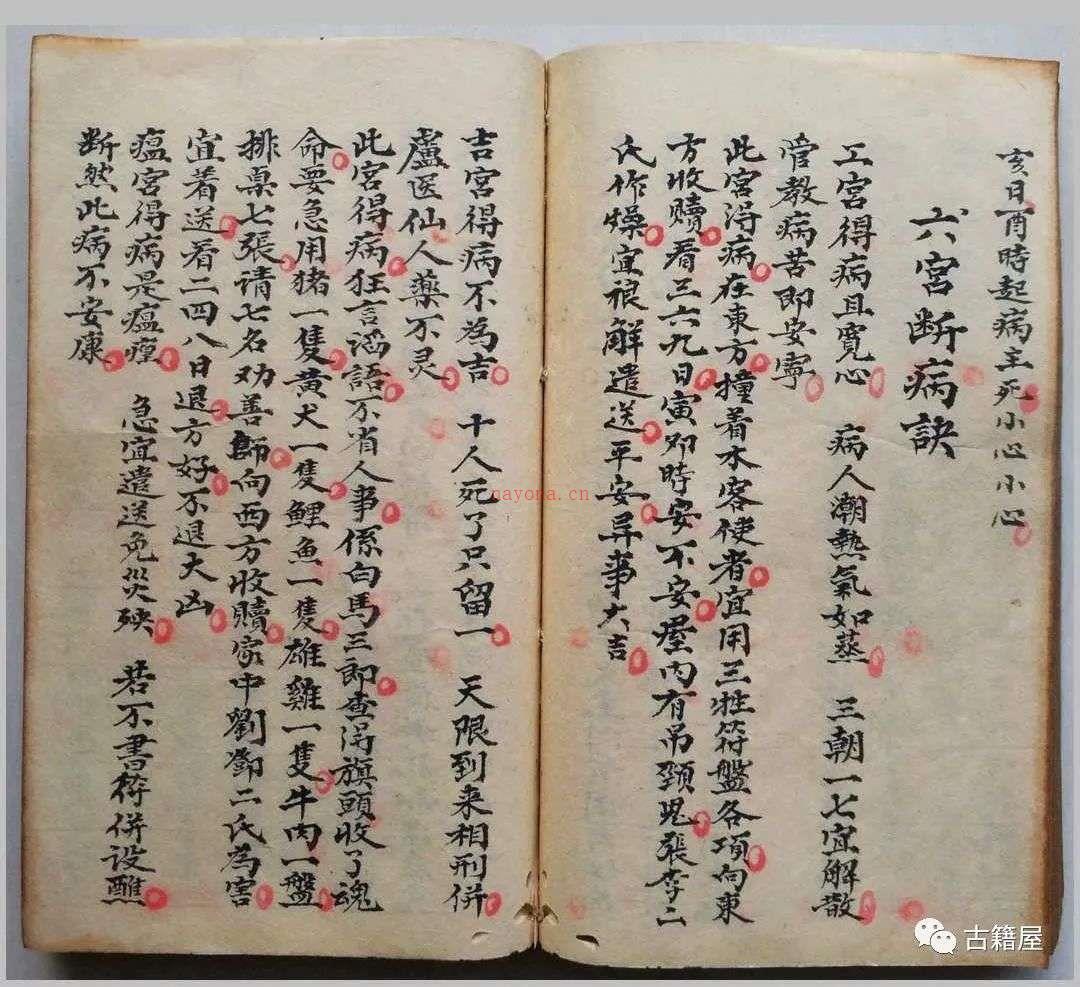 亥日酉時起病主死小心小心
六宮断病訣
工宮得病且寬心 病人潮熱氣如蒸 三朝一七宜解散
管教病苦即安寧
此宮得病在東方撞着水客使者宜用三牲符盤各項向東
方收贖看三六九日寅卯時安不安屋内有吊頸鬼張李二
氏作燥宜禳解遣送平安异事大吉
吉宮得病不為吉 十人死了只留一 天限到来相刑併
盧医仙人藥不灵
此宮得病狂言滔語不省人事係白馬三郎查得旗頭收了魂
命要急用猪一隻黄犬一隻鯉魚一隻雄雞一隻牛肉一盤
排桌七張请七名劝善師向西方收贖家中劉鄧二氏為害
宜着送看二四八日退方好不退大凶
瘟宮得病是瘟瘴 急宜遣送免災殃 若不書符併設醮
断然此病不安康
nayona.cn
古籍屋